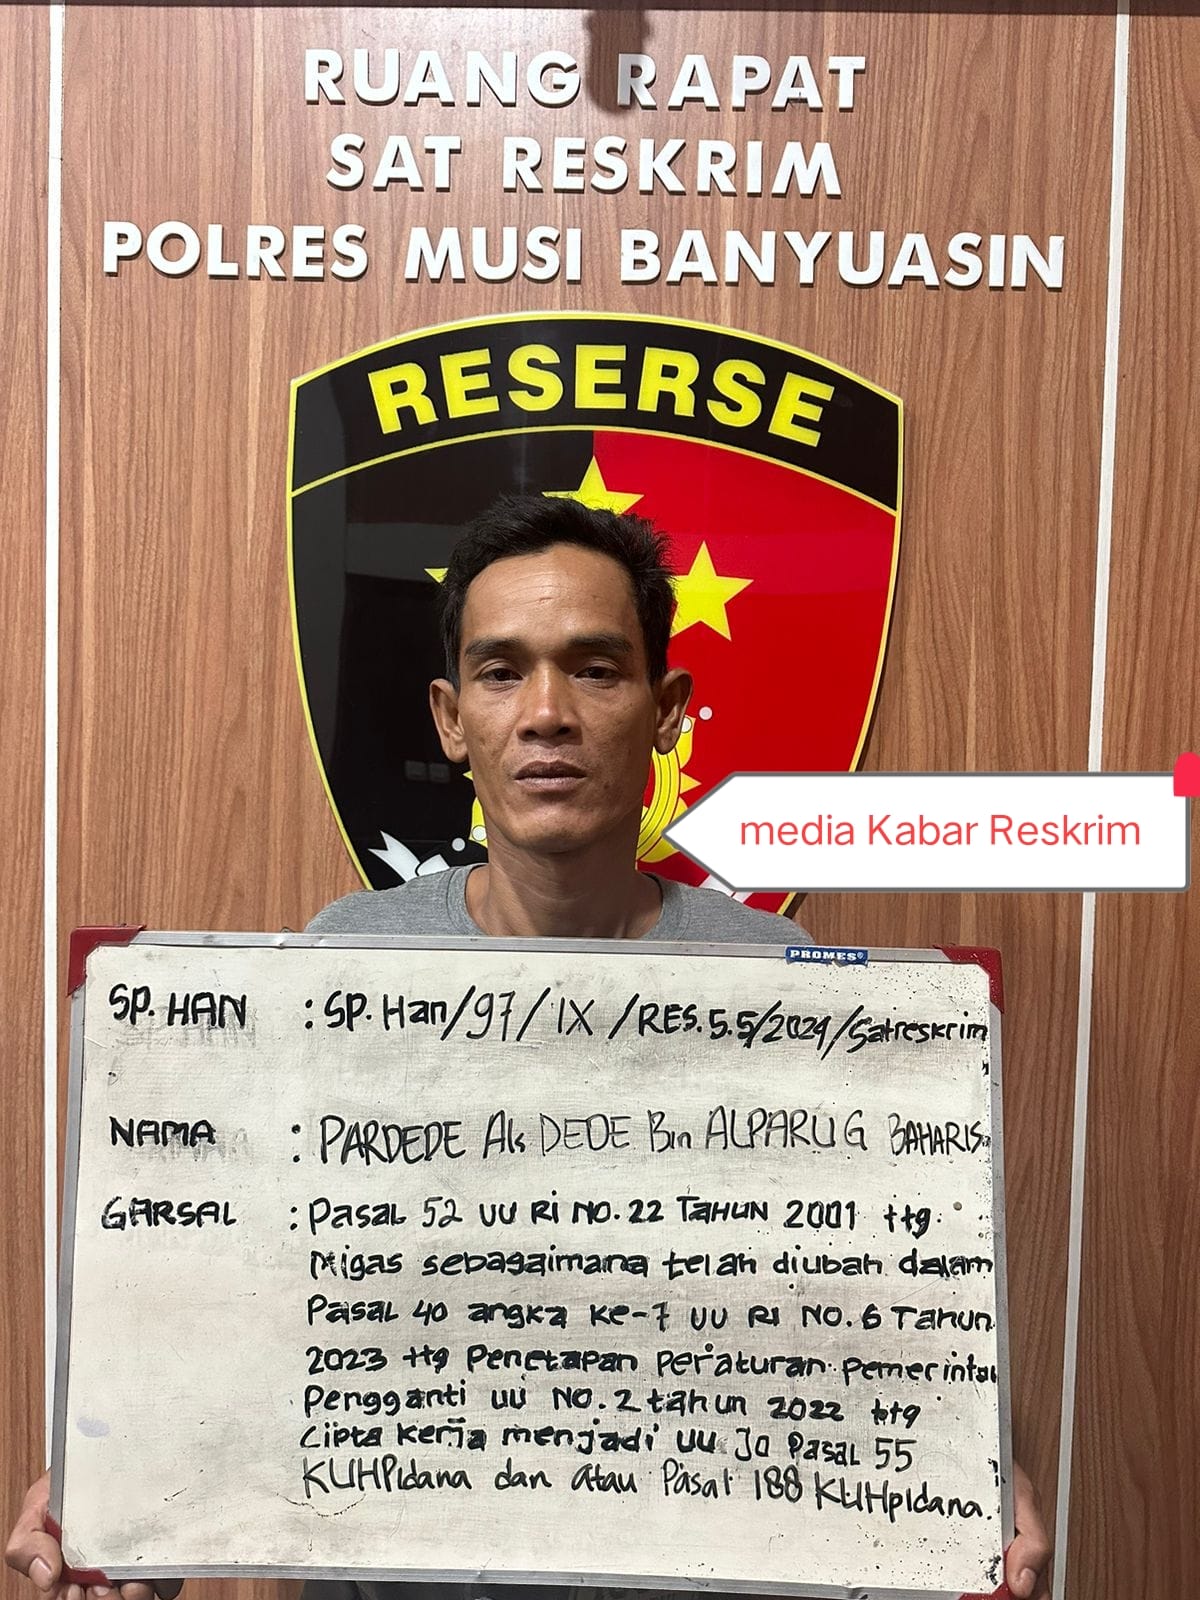 RUANG RAPAT
SAT RESKRIM
POLRES MUSI BANYUASIN
RESERSE
media Kabar Reskrim
PROMES®
SP. HAN : SP. Han/97/IX/RES.5.5/2024/Satreskrim
NAMA : PARDEDE Als DEDE Bin ALPARUG BAHARIS
GARSAL : Pasal 52 UU RI NO. 22 TAHUN 2001 ttg
Migas sebagaimana telah diubah dalam
Pasal 40 angka ke-7 UU RI NO. 6 Tahun
2023 ttg Penetapan peraturan pemerinta
Pengganti UU NO. 2 tahun 2022 ttg
Cipta kerja menjadi UU Jo Pasal 55
KUHPidana dan atau Pasal 188 KUHpidana.